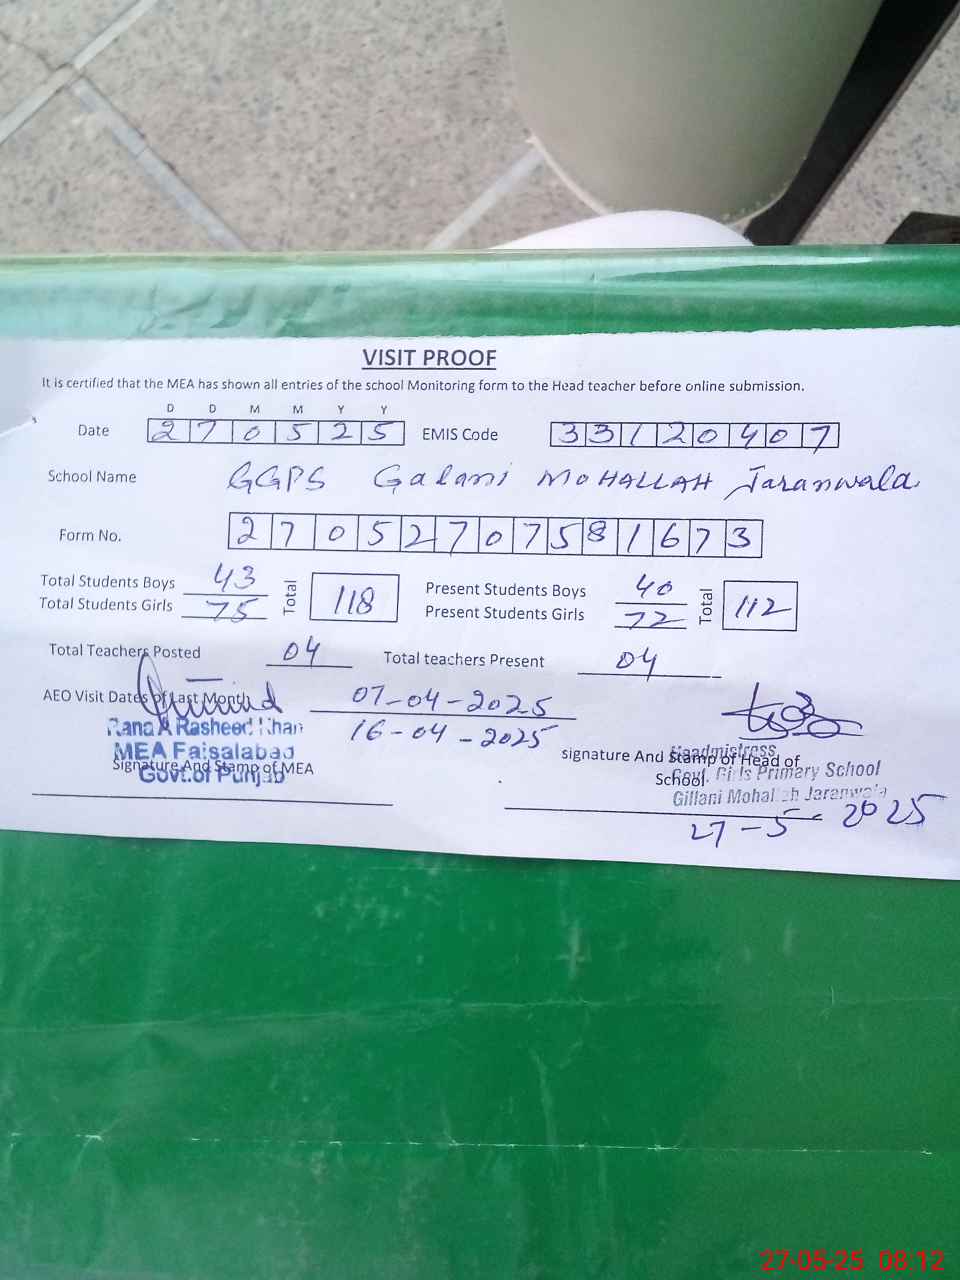 VISIT PROOF
It is certified that the MEA has shown all entries of the school Monitoring form to the Head teacher before online submission.
D D M M Y Y
Date 2 7 0 5 2 5 EMIS Code 3 3 1 2 0 4 0 7
School Name GGPS Galani MOHALLAH Jaranwala
Form No. 2 7 0 5 2 7 0 7 5 8 1 6 7 3
Total Students Boys 43 Total 118 Present Students Boys 40 Total 112
Total Students Girls 75 Present Students Girls 72
Total Teachers Posted 04 Total teachers Present 04
AEO Visit Dates of Last Month 07-04-2025
16-04-2025
Rana A Rasheed Khan
MEA Faisalabad
Signature And Stamp of MEA
Govt.of Punjab
signature And Stamp of Head of
School
Headmistress
Govt. Girls Primary School
Gillani Mohallah Jaranwala
27-5-2025
27-05-25 08:12